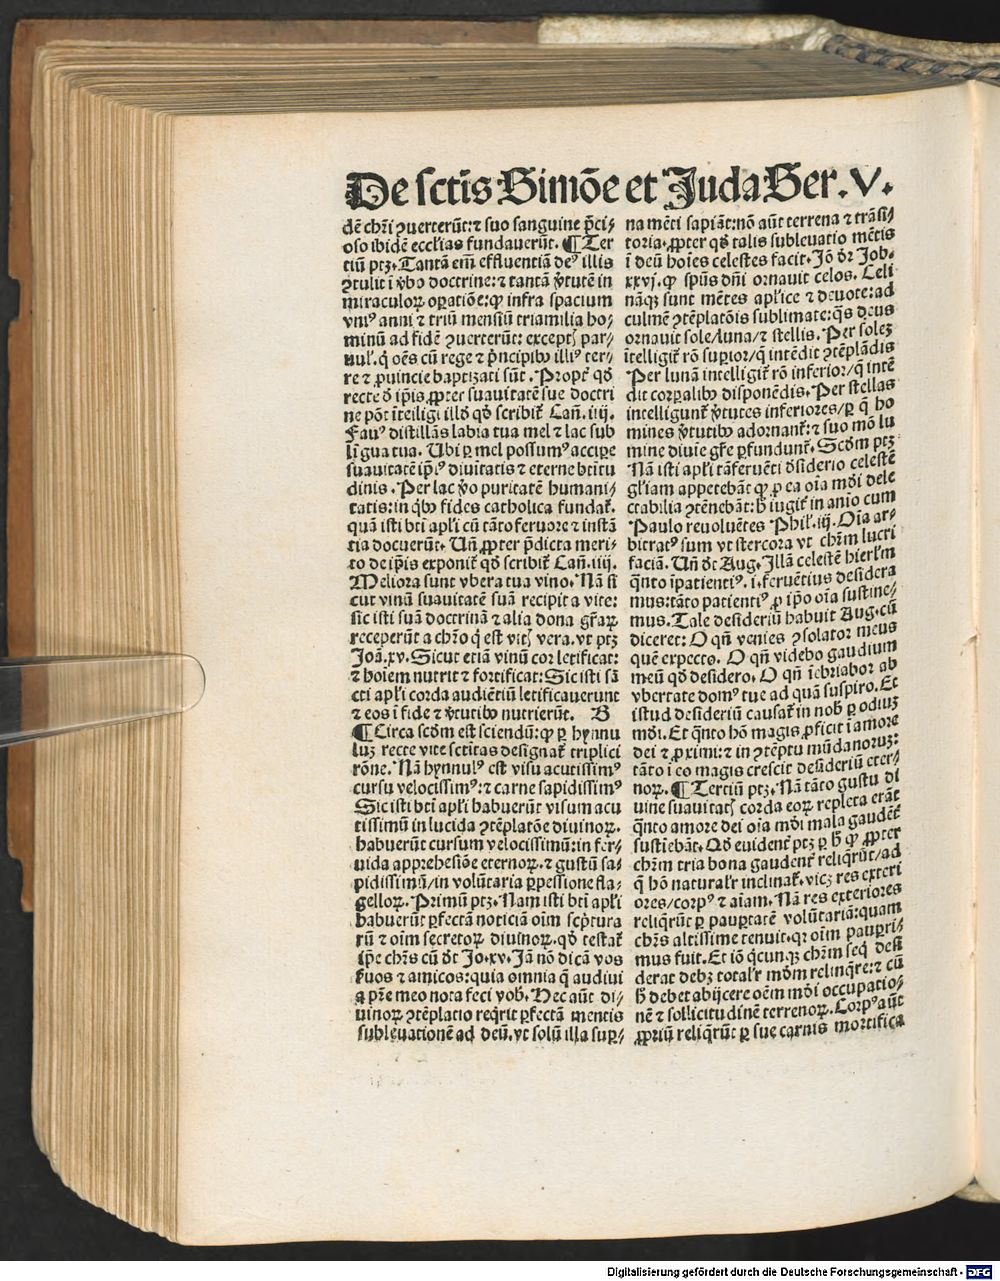 De sctis Simōe et Juda Ser. V.
dē chr̄i ꝯuerterūt: ⁊ suo sanguine p̄ci⸗
oso ibidē eccl'ias fundauerūt. ¶ Ter
tiū ptꝫ. Tantā em̄ effluentiā deꝰ illis
ꝯtulit ī v̄bo doctrine: ⁊ tantā v̄tutē in
miraculoꝝ oꝑatiōe: ꝙ infra spacium
vniꝰ anni ⁊ triū mensiū triamilia ho⸗
minū ad fidē ꝯuerterūt: exceptꝭ par⸗
uul'. q̇ oēs cū rege ⁊ p̄ncipibꝰ illiꝰ ter⸗
re ⁊ ꝓuincie baptizati sūt. Propt̄ qd̄
recte d̄ ip̄is ꝓpter suauitatē sue doctri
ne pōt īteiligi illd̄ qd̄ scribit̄ Cañ. iiij.
Fauꝰ distillās labia tua mel ⁊ lac sub
līgua tua. Ubi ꝑ mel possumꝰ accipe
suauitatē ip̄iꝰ diuitatis ⁊ eterne btītu
dinis. Per lac v̄o puritatē humani⸗
tatis: in q̇bꝰ fides catholica fundat̄.
quā isti bt̄i apl'i cū tāto feruore ⁊ instā
tia docuerūt. Uñ ꝓpter p̄dicta meri⸗
to de ip̄is exponit̄ qd̄ scribit̄ Cañ. iiij.
Meliora sunt vbera tua vino. Nā si
cut vinū suauitatē suā recipit a vite:
sic isti suā doctrinā ⁊ alia dona gr̄aꝝ
receperūt a chr̄o q̇ est vitꝭ vera. vt ptꝫ
Joā. xv. Sicut etiā vinū cor letificat:
⁊ hoiem nutrit ⁊ fortificat: Sic isti sā
cti apl'i corda audiētiū letificauerunt
⁊ eos ī fide ⁊ v̄tutibꝰ nutrierūt. B
¶ Circa scd̄m est sciendū: ꝙ ꝑ hynnu
luꝫ recte vite sctitas designat̄ triplici
rōne. Nā hynnulꝰ est visu acutissimꝰ
cursu velocissimꝰ: ⁊ carne sapidissimꝰ
Sic isti bt̄i apl'i habuerūt visum acu
tissimū in lucida ꝯtēplatōe diuinoꝝ.
habuerūt cursum velocissimū: in fer⸗
uida apprehēsiōe eternoꝝ. ⁊ gustū sa⸗
pidissimū/ in volūtaria ꝑpessione fla⸗
gelloꝝ. Primū ptꝫ. Nam isti bt̄i apl'i
habuerūt ꝑfectā noticiā oīm scpt̄ura
rū ⁊ oīm secretoꝝ diuinoꝝ. qd̄ testat̄
ip̄e chr̄s cū d̄t Jo. xv. Jā nō dicā vos
ẜuos ⁊ amicos: quia omnia q̄ audiui
a pr̄e meo nota feci vob̄. Hec aūt di⸗
uinoꝝ ꝯtēplatio req̇rit ꝑfectā mentis
subleuationē ad deū. vt solū illa suꝑ⸗
na mēti sapiāt: nō aūt terrena ⁊ trāsi⸗
toria. ꝓpter qd̄ talis subleuatio mētis
ī deū hoīes celestes facit. Jō dr̄ Job.
xxvj. ꝙ spūs dn̄i ornauit celos. Celi
nāqꝫ sunt mētes apl'ice ⁊ deuote: ad
culmē ꝯtēplatōis sublimate: q̄s deus
ornauit sole/ luna/ ⁊ stellis. Per soleꝫ
ītelligit̄ rō suꝑior/ q̄ intēdit ꝯtēplādis
Per lunā intelligit̄ rō inferior/ q̄ intē
dit corꝑalibꝰ disponēdis. Per stellas
intelligunt̄ v̄tutes inferiores/ ꝑ q̄ ho
mines v̄tutibꝰ adornant̄: ⁊ suo mō lu
mine diuie gr̄e ꝑfundunt̄. Scd̄m ptꝫ
Nā isti apl'i tā feruēti d̄siderio celestē
gl'iam appetebāt ꝙ ꝑ ea oīa mōi dele
ctabilia ꝯtēnebāt: h̄ iugit̄ in anio cum
Paulo reuoluētes Phil'. iij. Oīa ar⸗
bitratꝰ sum vt stercora vt chr̄m lucri
faciā. Uñ d̄t Aug. Illā celestē hierl'm
q̄nto īpatientiꝰ. i. feruētius desidera
mus: tāto patientiꝰ ꝓ ip̄o oīa sustine⸗
mus. Tale desideriū habuit Aug. cū
diceret: O qn̄ venies ꝯsolator meus
quē expecto. O qn̄ videbo gaudium
meū qd̄ desidero. O qn̄ īebriabor ab
vbertate domꝰ tue ad quā suspiro. Et
istud desideriū causat̄ in nob̄ ꝑ odiuꝫ
mōi. Et q̄nto hō magis ꝓficit ī amore
dei ⁊ ꝓximi: ⁊ in ꝯtēptu mūdanoruꝫ:
tāto ī eo magis crescit desideriū eter⸗
noꝝ. ¶ Tertiū ptꝫ. Nā tāto gustu di
uine suauitatꝭ corda eoꝝ repleta erāt
q̄nto amore dei oīa mōi mala gaudēt̄
sustīebāt. Qd̄ euident̄ ptꝫ ꝑ h̄ ꝙ ꝓpter
chr̄m tria bona gaudent̄ reliq̄rūt/ ad
q̄ hō natural'r inclinat̄. vicꝫ res exteri
ores/ corpꝰ ⁊ aīam. Nā res exteriores
reliq̄rūt ꝑ pauꝑtatē volūtariā: quam
chr̄s altissime tenuit. qꝛ oīm pauꝑri⸗
mus fuit. Et iō q̇cunqꝫ chr̄m seq̇ desi
derat debꝫ total'r mōm relinq̄re: ⁊ cū
h̄ debet abijcere oēm mōi occupatio⸗
nē ⁊ sollicitudinē terrenoꝝ. Corpꝰ aūt
ꝓpriū reliq̄rūt ꝑ sue carnis mortifica
Digitalisierung gefördert durch die Deutsche Forschungsgemeinschaft - DFG